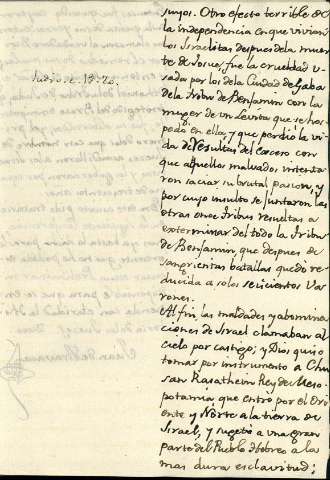 suyos. Otro efecto terrible de
la independencia en que vivian
los Israelitas despues de la muer-
te de Josue, fue la crueldad u-
sada por los de la Ciudad de Gaba
de la tribu de Benjamin con la
muger de un Levita que se hos-
pedó en ella, y que perdió la vi-
da de resultas del exceso con
que aquellos malvados intenta-
ron saciar su brutal pasion, y
por cuyo insulto se juntaron las
otras once tribus resueltas a
exterminar del todo la tribu
de Benjamin, que despues de
sangrientas batallas quedó re-
ducida a solos seiscientos Va-
rones.
Al fin las maldades y abomina-
ciones de Israel clamaban al
cielo por castigo; y Dios quiso
tomar por instrumento a Chu-
san Rasathein Rey de Meso-
potamia que entró por el Ori-
ente y Nórte a la tierra de
Israel, y sugetó a una gran
parte del Pueblo Hebreo a la
mas dura esclavitud;
Judic. c. 19. 20.